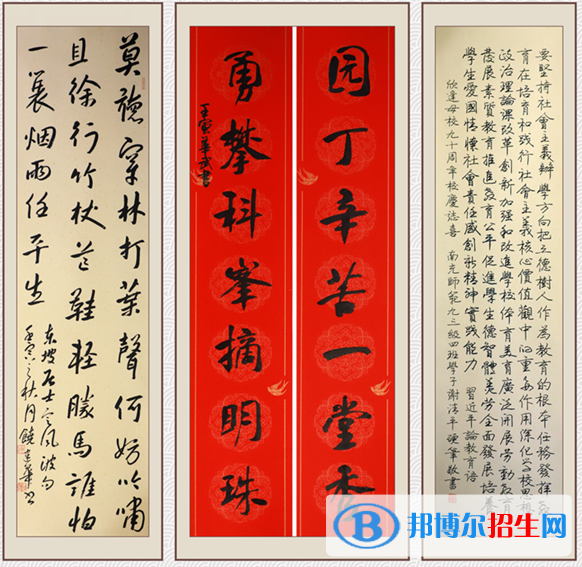 莫聽穿林打葉聲何妨吟嘯
且徐行竹杖芒鞋輕勝馬誰怕
一蓑烟雨任平生
東坡居士定風波句
壬寅之秋月饒華书
园丁辛苦一堂秀
勇攀科峯摘明珠
壬寅華武書
要堅持社會主義辦學方向把立德樹人作為教育的根本任務發揮教
育在培育和踐行社會主義核心價值觀中的重要作用深化学校思想
政治理論課改革創新加強和改進學校体育美育廣泛開展勞動教育
發展素質教育推進教育公平促進學生德智體美勞全面發展培養
學生愛國情懷社會責任感創新精神實踐能力 習近平論教育語
欣逢母校九十周年校慶誌喜 南充師範九三級四班學子謝清平硬筆敬書
邦博尔招生网